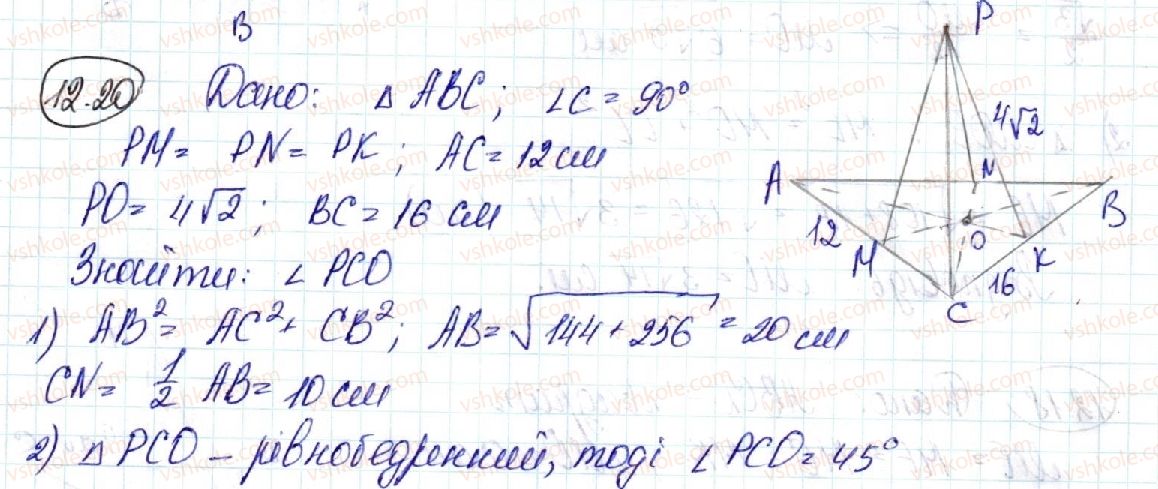 В
12.20 Дано: △ ABC; ∠C = 90°
PM = PN = PK; AC = 12 см
PO = 4√2; BC = 16 см
Знайти: ∠ PCO
1) AB² = AC² + CB²; AB = √144 + 256 = 20 см
CN = 1/2 AB = 10 см
2) △ PCO – рівнобедренний, тоді ∠ PCO = 45°
P
4√2
A N B
O
12 M K
16
C
vshkole.com